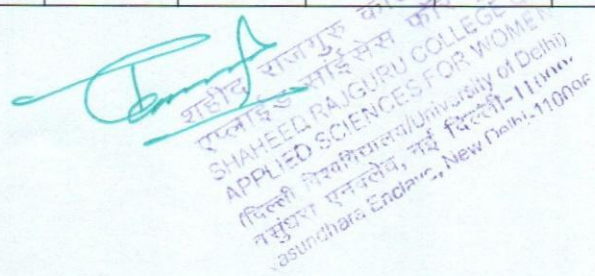 शहीद राजगुरु
एप्लाईड साईंसेस फॉर
SHAHEED RAJGURU COLLEGE
APPLIED SCIENCES FOR WOMEN
(दिल्ली विश्वविद्यालय/University of Delhi)
वसुंधरा एनक्लेव, नई दिल्ली-11
asundhara Enclave, New Delhi-110096